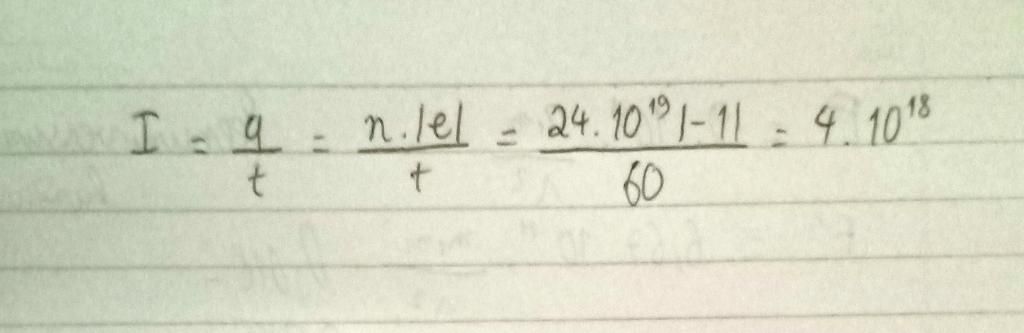 I = q/t = n.|e|/t = 24.10¹⁹|-1|/60 = 4.10¹⁸